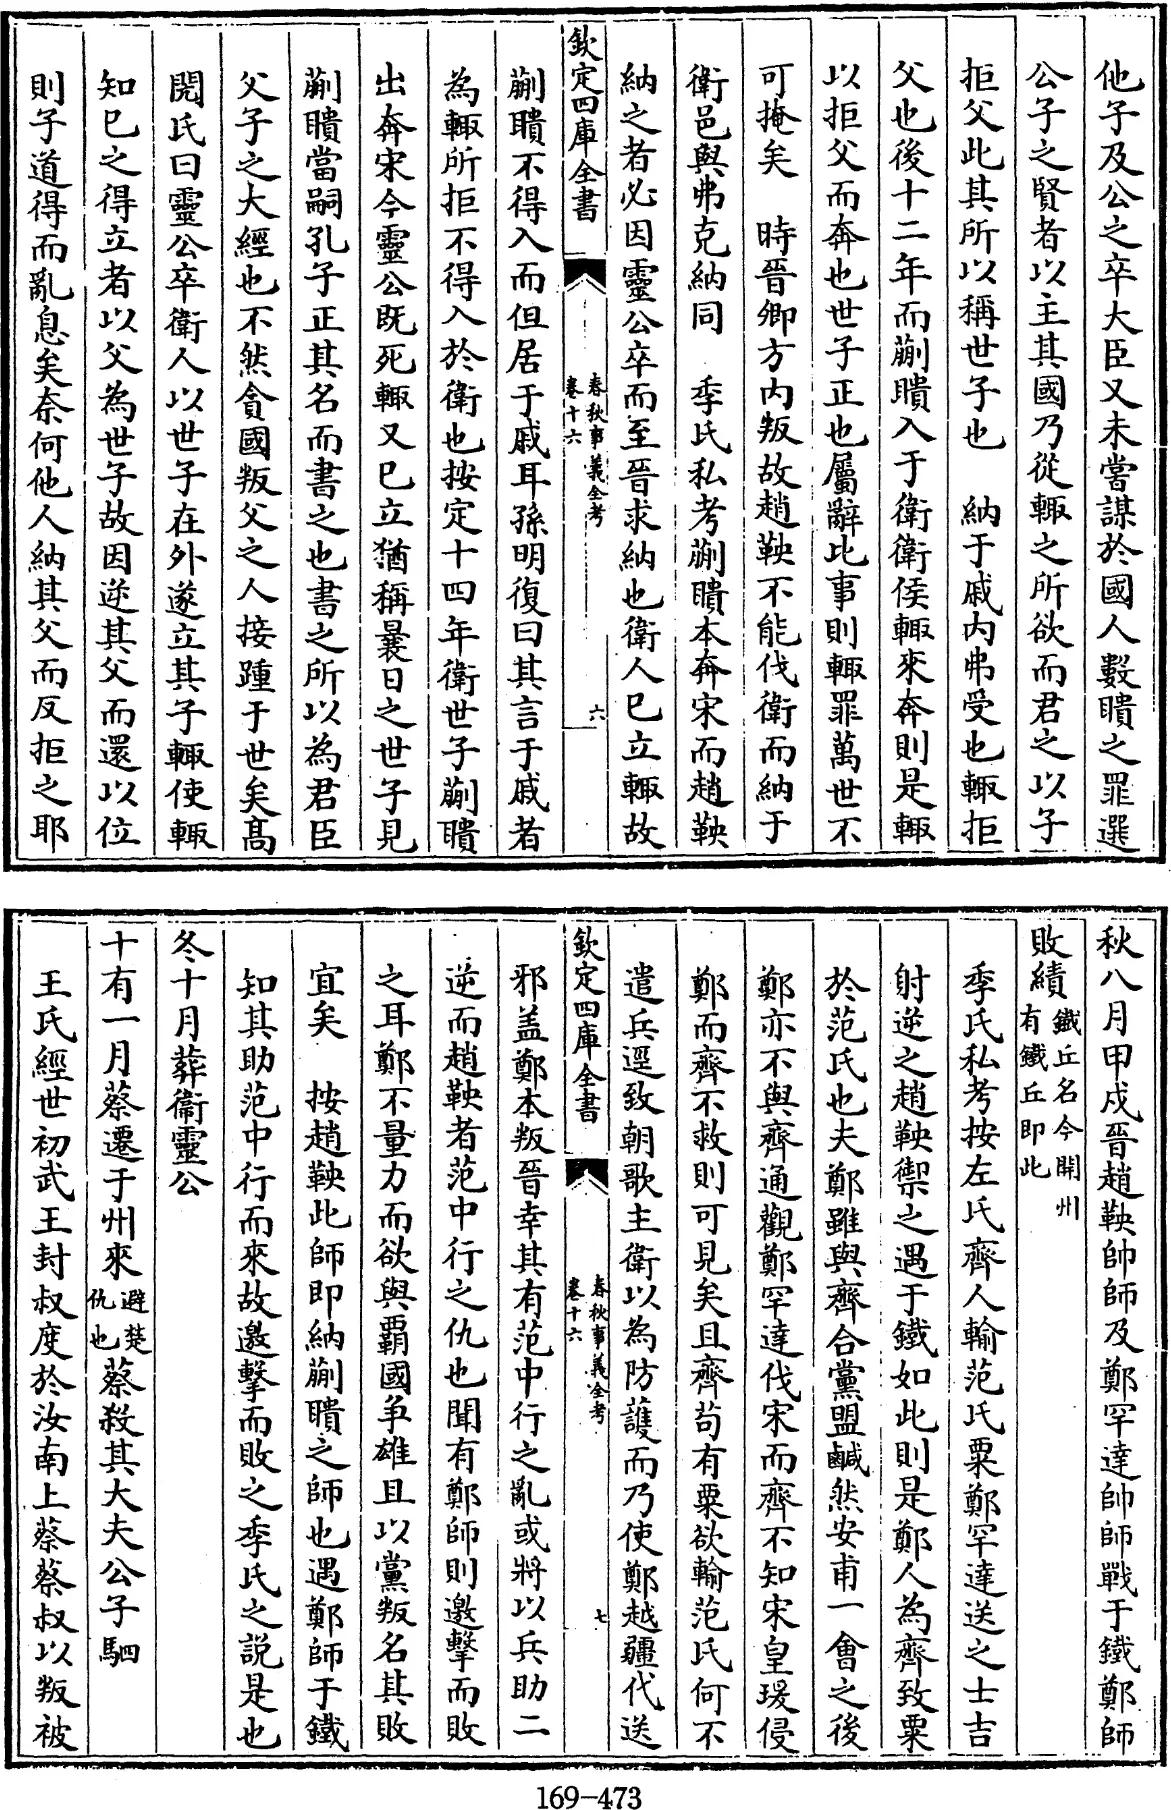 他子及公之卒大臣又未嘗謀於國人數聵之罪選
公子之賢者以主其國乃從輙之所欲而君之以子
拒父此其所以稱世子也　納于戚内弗受也輙拒
父也後十二年而蒯聵入于衛衛侯輙來奔則是輙
以拒父而奔也世子正也屬辭比事則輙罪萬世不
可掩矣　時晉卿方内叛故趙鞅不能伐衛而納于
衛邑與弗克納同　季氏私考蒯聵本奔宋而趙鞅
納之者必因靈公卒而至晉求納也衛人已立輙故
欽定四庫全書
春秋事義全考
卷十六
六
蒯聵不得入而但居于戚耳孫明復曰其言于戚者
為輙所拒不得入於衛也按定十四年衛世子蒯聵
出奔宋今靈公既死輙又已立猶稱曩日之世子見
蒯聵當嗣孔子正其名而書之也書之所以為君臣
父子之大經也不然貪國叛父之人接踵于世矣髙
閌氏曰靈公卒衛人以世子在外遂立其子輙使輙
知已之得立者以父為世子故因逆其父而還以位
則子道得而亂息矣奈何他人納其父而反拒之耶
秋八月甲戌晉趙鞅帥師及鄭罕達帥師戰于鐵鄭師
敗績鐵丘名今開州有鐵丘即此
季氏私考按左氏齊人輸范氏粟鄭罕達送之士吉
射逆之趙鞅禦之遇于鐵如此則是鄭人為齊致粟
於范氏也夫鄭雖與齊合黨盟鹹然安甫一會之後
鄭亦不與齊通觀鄭罕達伐宋而齊不知宋皇瑗侵
鄭而齊不救則可見矣且齊苟有粟欲輸范氏何不
遣兵逕致朝歌主衛以為防護而乃使鄭越疆代送
欽定四庫全書
春秋事義全考
卷十六
七
邪蓋鄭本叛晉幸其有范中行之亂或將以兵助二
逆而趙鞅者范中行之仇也聞有鄭師則邀擊而敗
之耳鄭不量力而欲與覇國爭雄且以黨叛名其敗
宜矣　按趙鞅此師即納蒯聵之師也遇鄭師于鐵
知其助范中行而來故邀擊而敗之季氏之説是也
冬十月葬衛靈公
十有一月蔡遷于州來避楚仇也蔡殺其大夫公子駟
王氏經世初武王封叔度於汝南上蔡蔡叔以叛被
169-473